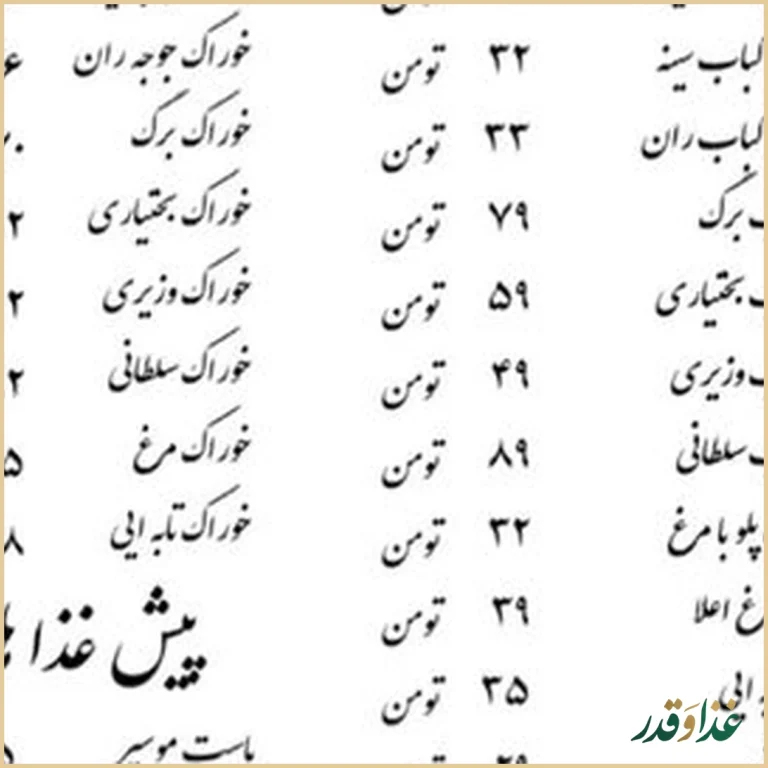 کباب سینه ۳۲ تومن
کباب ران ۳۳ تومن
برگ ۷۹ تومن
بختیاری ۵۹ تومن
وزیری ۴۹ تومن
سلطانی ۸۹ تومن
پلو با مرغ ۳۲ تومن
اعلا ۳۹ تومن
ایی ۳۵ تومن
خوراک جوجه ران
خوراک برگ
خوراک بختیاری ۲
خوراک وزیری ۲
خوراک سلطانی ۲
خوراک مرغ ۵
خوراک تابه ایی ۸
پیش غذا
ماست موسیر
غذا و قدر